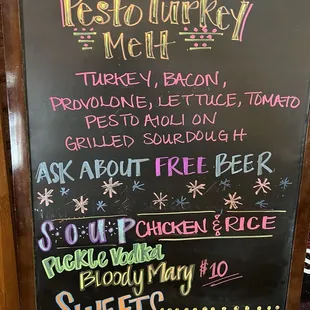 Pesto Turkey
Melt
TURKEY, BACON,
PROVOLONE, LETTUCE, TOMATO
PESTO AIOLI ON
GRILLED SOURDOUGH
ASK ABOUT FREE BEER
SOUP CHICKEN & RICE
Pickle Vodka
Bloody Mary $10
SWEETS